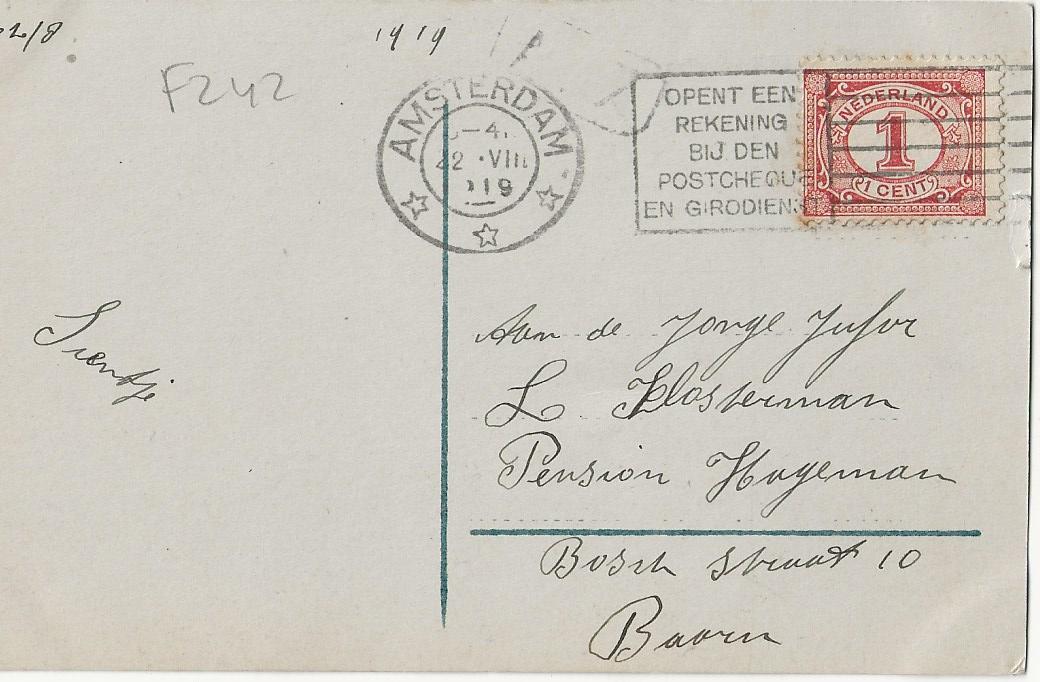 22/8 1919
F242
AMSTERDAM
22 .VIII
19
OPENT EEN
REKENING
BIJ DEN
POSTCHEQU
EN GIRODIENS
NEDERLAND
1
1 CENT
Sientje
Aan de Jonge Jufvr
L Klosterman
Pension Hageman
Bosch straat 10
Baarn